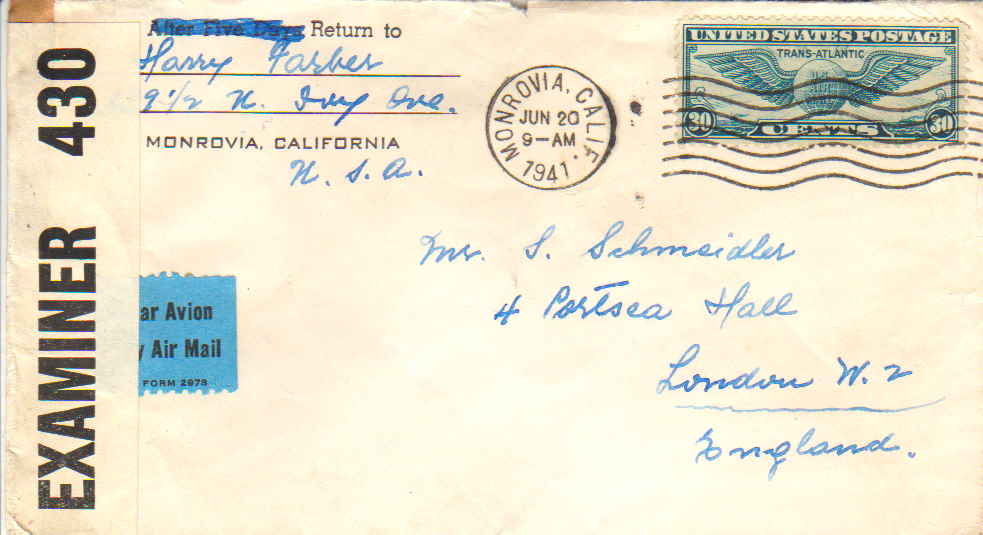 After Five Days Return to
Harry Farber
9 1/2 N. Ivy Ave.
MONROVIA, CALIFORNIA
U. S. A.
EXAMINER 430
MONROVIA, CALIF.
JUN 20
9-AM
1941
UNITED STATES POSTAGE
TRANS-ATLANTIC
30 CENTS 30
ar Avion
y Air Mail
FORM 2978
Mr. S. Schmeidler
4 Portsea Hall
London W. 2
England.